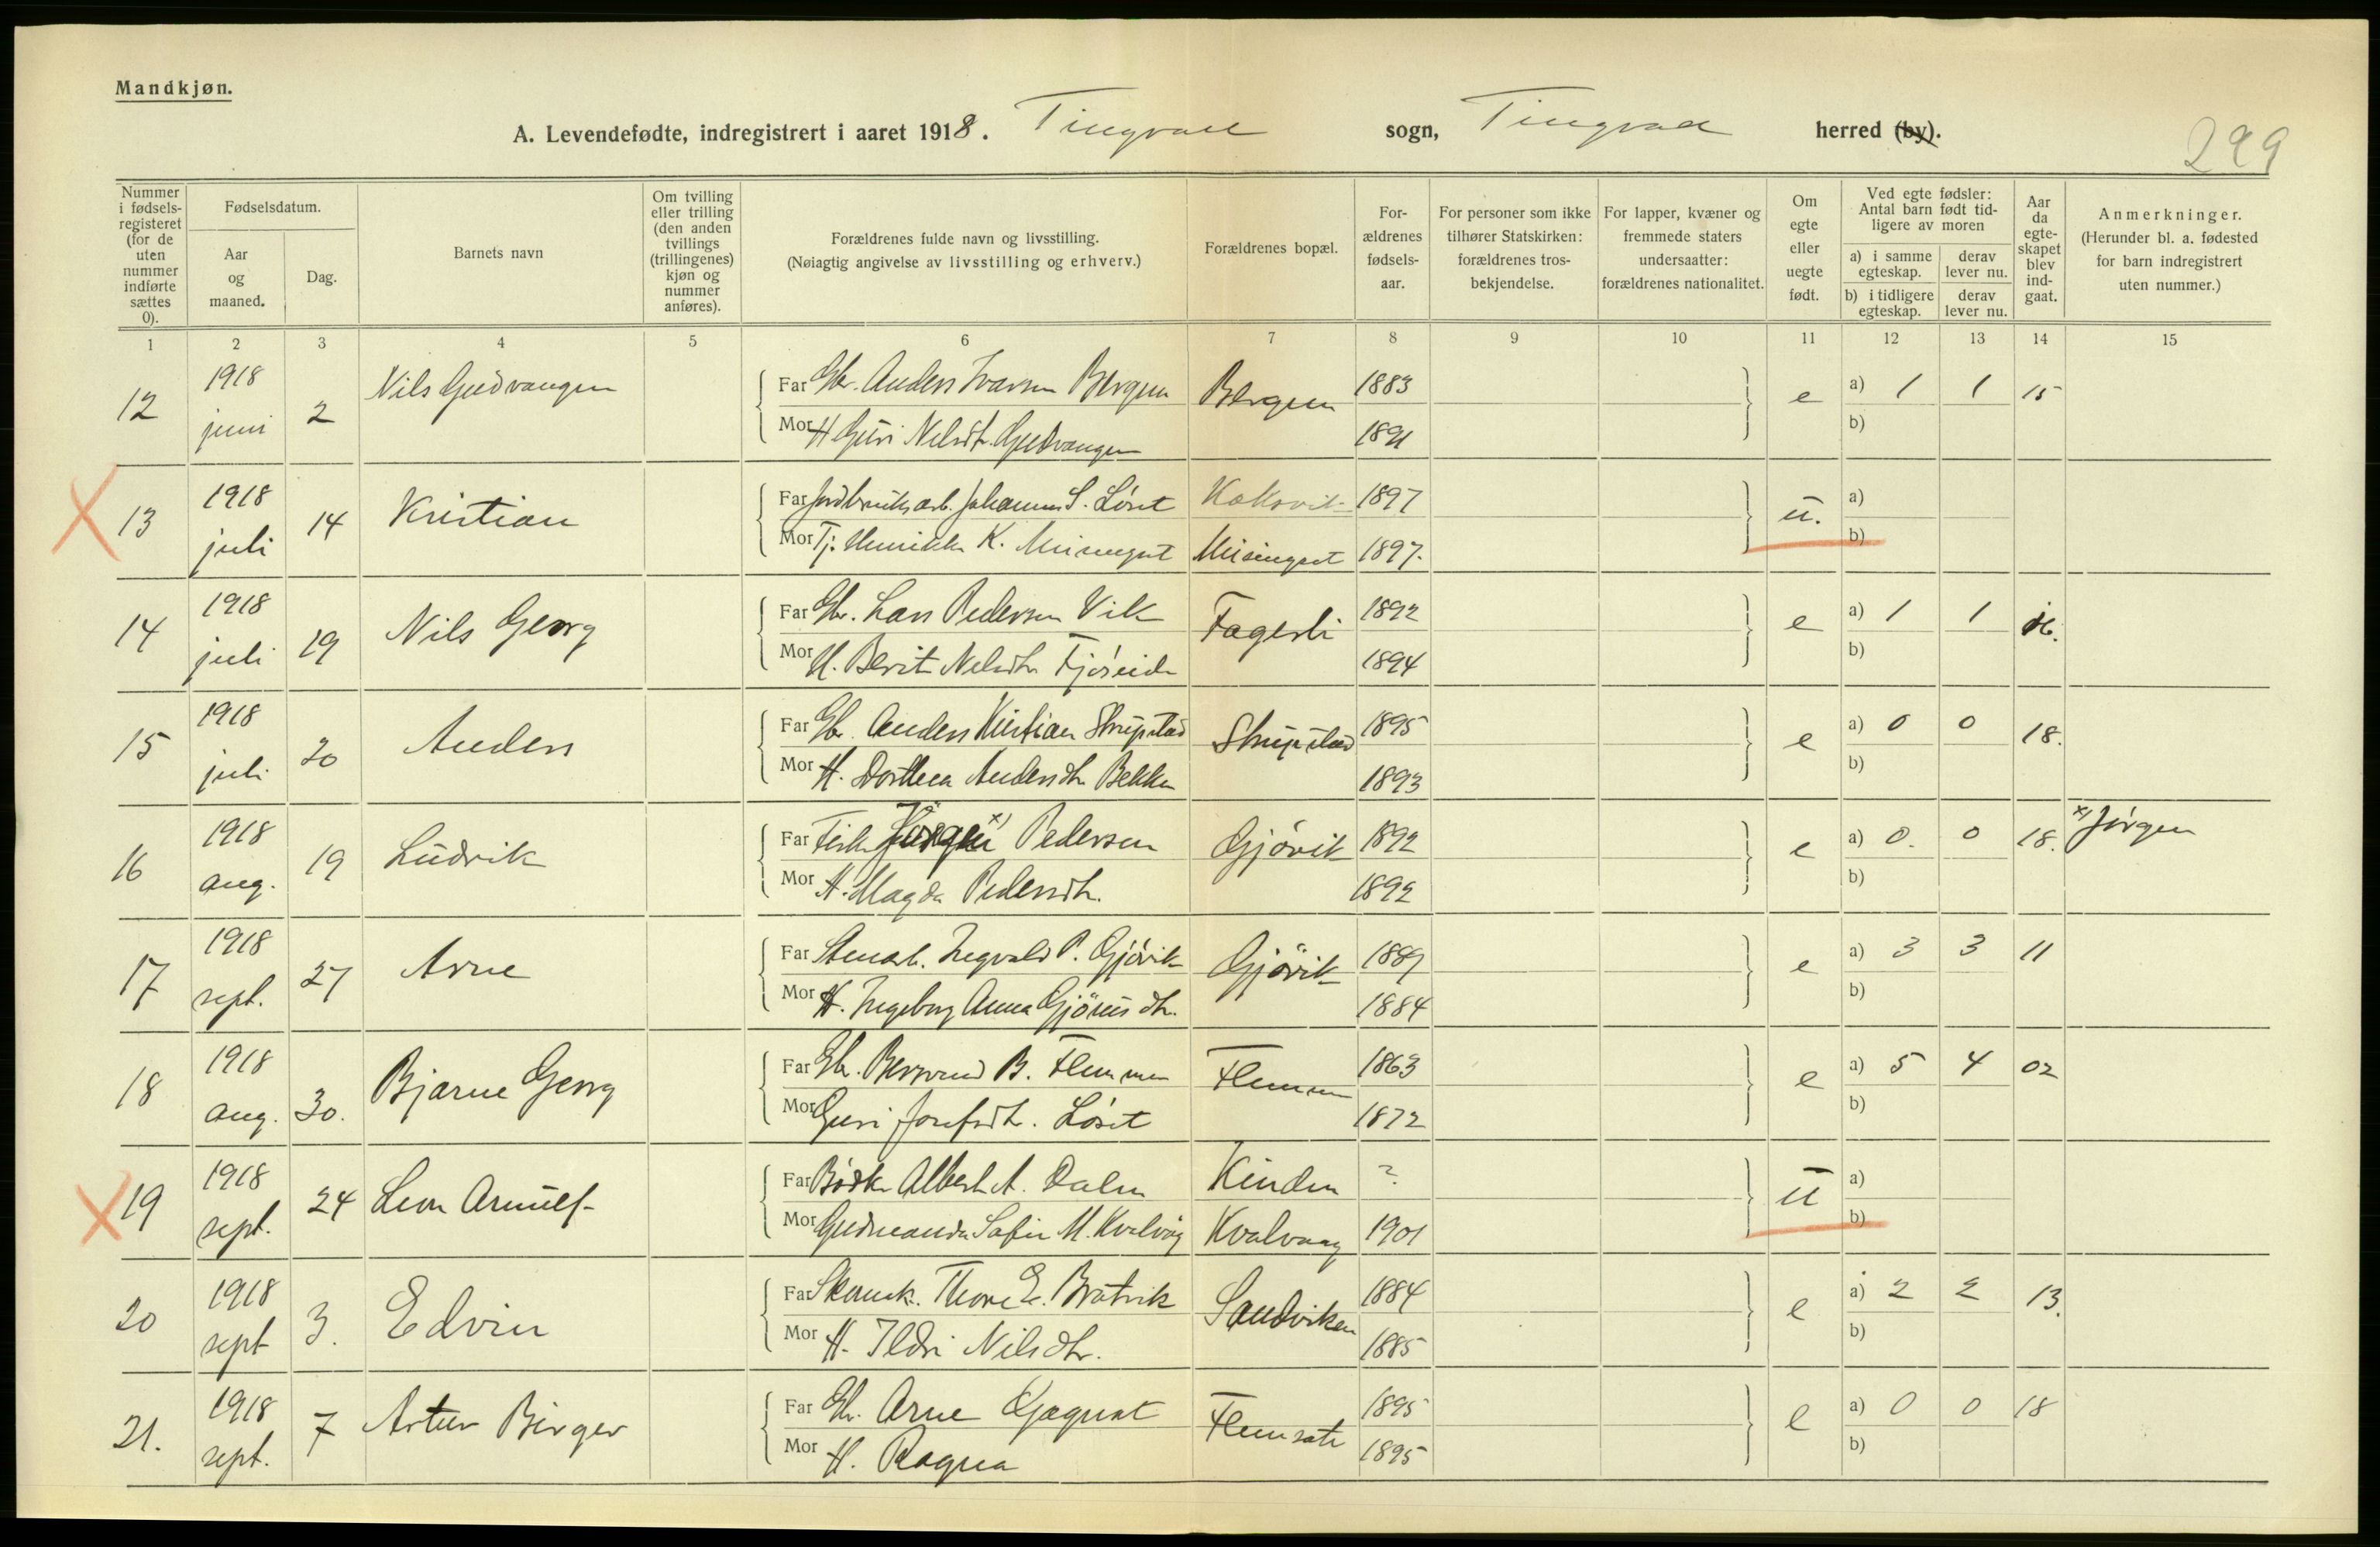 Mandkjøn.
A. Levendefødte, indregistrert i aaret 1918. Tingvoll sogn, Tingvoll herred (by).
299
Nummer i fødsels-registeret (for de uten nummer indførte sættes 0).
Fødselsdatum.
Aar og maaned.
Dag.
Barnets navn
Om tvilling eller trilling (den anden tvillings (trillingenes) kjøn og nummer anføres).
Forældrenes fulde navn og livsstilling.
(Nøiagtig angivelse av livsstilling og erhverv.)
Forældrenes bopæl.
For-ældrenes fødsels-aar.
For personer som ikke tilhører Statskirken: forældrenes tros-bekjendelse.
For lapper, kvæner og fremmede staters undersaatter: forældrenes nationalitet.
Om egte eller uegte født.
Ved egte fødsler: Antal barn født tid-ligere av moren
a) i samme egteskap. derav lever nu.
b) i tidligere egteskap. derav lever nu.
Aar da egte-skapet blev ind-gaat.
Anmerkninger.
(Herunder bl. a. fødested for barn indregistrert uten nummer.)
1 2 3 4 5 6 7 8 9 10 11 12 13 14 15
12 1918 juni 2 Nils Gudvangen
Far Gbr. Anders Ivarsen Bergem Bergem 1883 e a) 1 1 15
Mor H Guri Nelsdt. Gudvangen 1891 b)
13 1918 juli 14 Kristian
Far Jordbruksarb. Johannes S. Løset Koksvik 1897 u. a)
Mor Tj. K. Meisingset Meisingset 1897. b)
14 1918 juli 19 Nils Georg
Far Gbr. Lars Pedersen Vik Fagerli 1892 e a) 1 1 16.
Mor H. Berit Nelsdtr Fjøseide 1894 b)
15 1918 juli 20 Anders
Far Gbr. Anders Kristian Strupstad Strupstad 1895 e a) 0 0 18.
Mor H. Dorthea Andersdtr Bekken 1893 b)
16 1918 aug. 19 Ludvik
Far Fisker Jørgen x) Pedersen Gjøvik 1892 e a) 0. 0 18. x) Jørgen
Mor H. Magda Pedersdtr. 1892 b)
17 1918 sept. 27 Arne
Far Stenarb. Ingvald P. Gjøvik Gjøvik 1889 e a) 3 3 11
Mor H. Ingeborg Anna Gjørusdtr. 1884 b)
18 1918 aug. 30. Bjarne Georg
Far Gbr. B. Flemmen Flemmen 1863 e a) 5 4 02
Mor Guri Josefsdtr. Løset 1872 b)
19 1918 sept. 24 Leon Arnulf
Far Bødker Albert A. Dalen Kinden ? u a)
Mor Gudmanda Sofie M. Kvalvåg Kvalvaag 1901 b)
20 1918 sept 3. Edvin
Far Thore E. Bratvik Sandviken 1884 e a) 2 2 13.
Mor H. Ildri Nilsdtr. 1885 b)
21. 1918 sept. 7 Artur Birger
Far Gbr. Arne Gagnat Flemsæter 1895 e a) 0 0 18
Mor H. Ragna 1895 b)